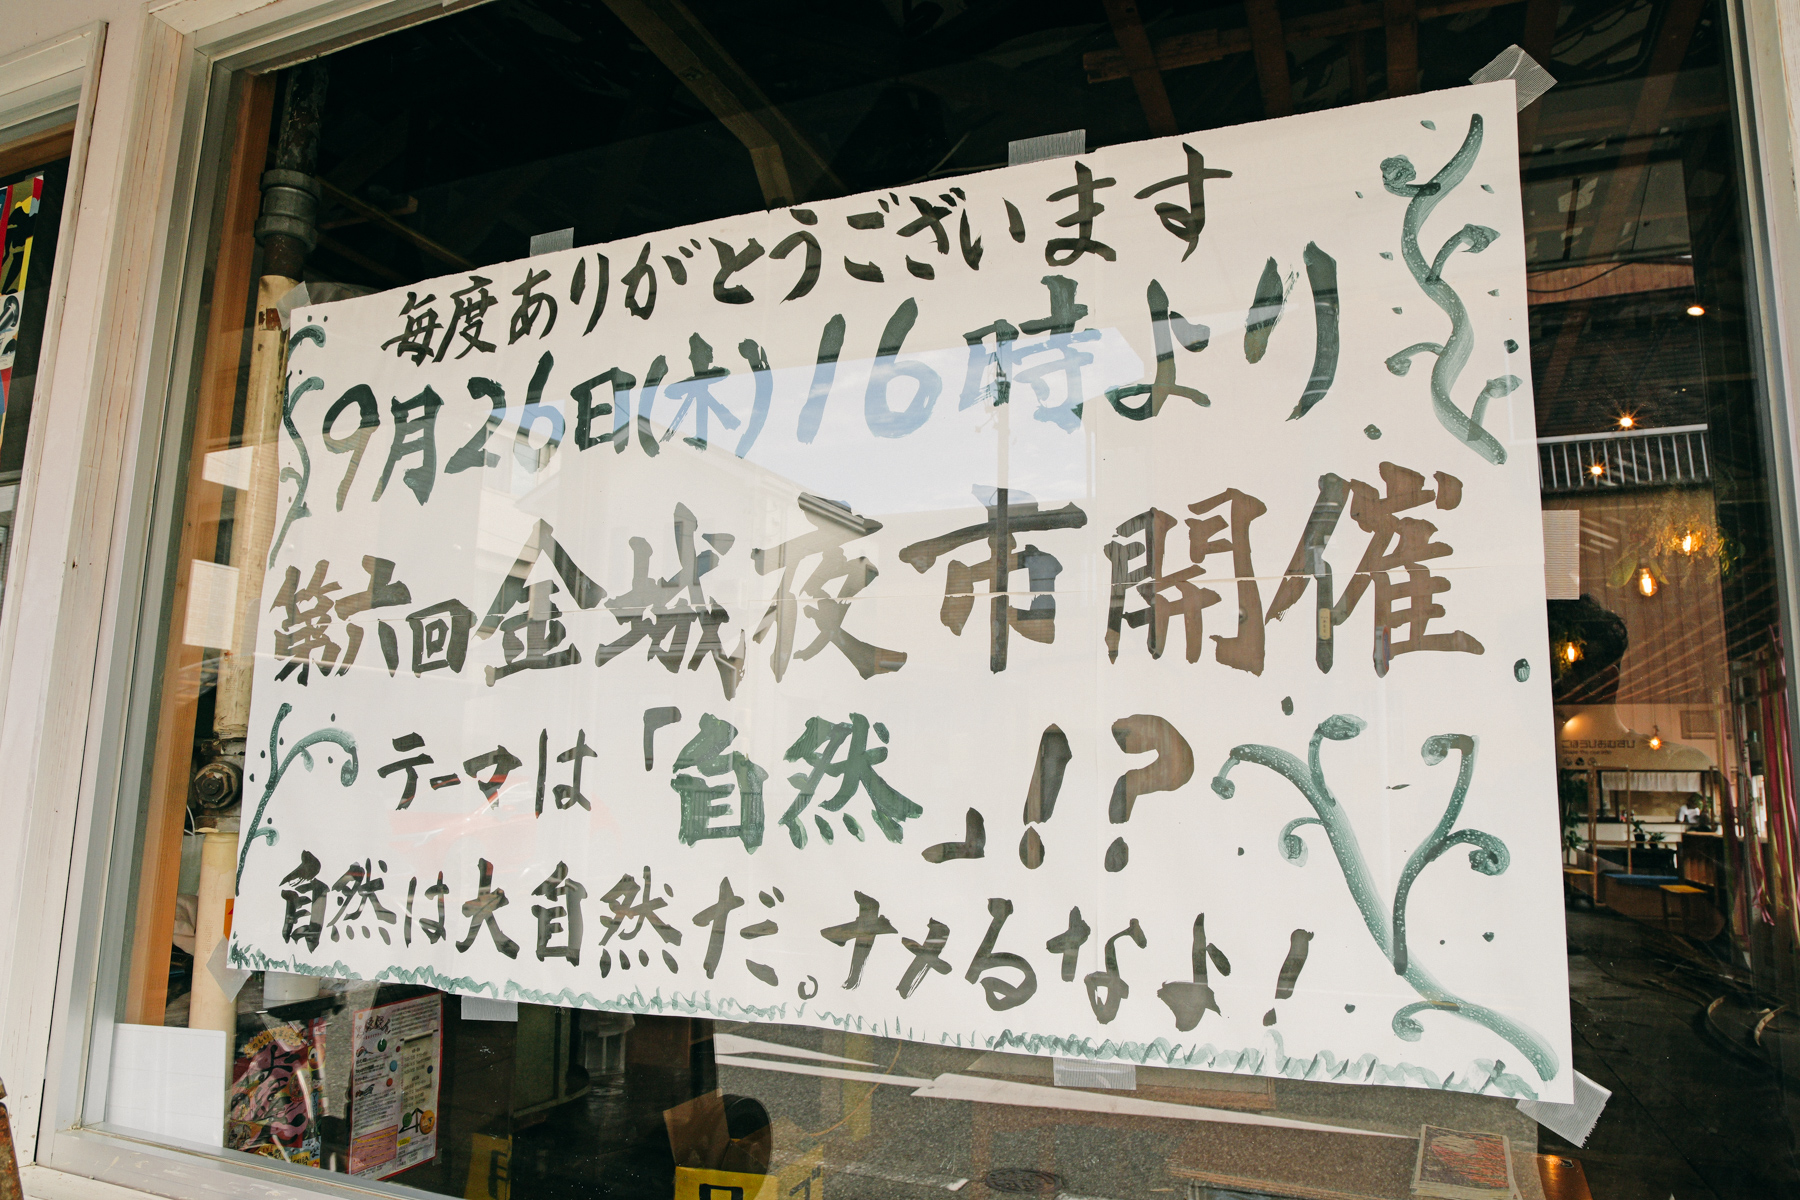 毎度ありがとうございます
9月26日(木)16時より
第六回金城夜市開催
テーマは「自然」!?
自然は大自然だ。ナメるなよ!